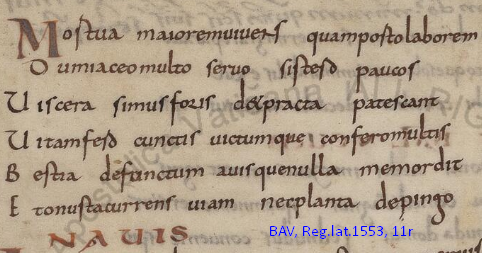 Mortua maioremuiuens quamportolaborem
Dumiaceomulto seruo sistero paucos
Uiscera simusforis patescant
Uitamfero cunctis uictumque conferomultis
Bestia defunctum auisquenulla memordit
Etonustacurrens uiam necplanta depingo
NAUIS
BAV, Reg.lat.1553, 11r